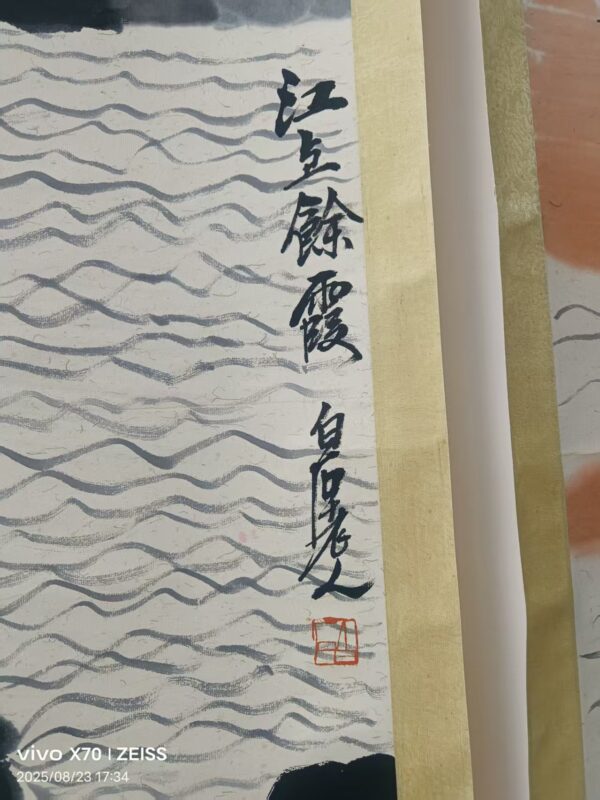 江上餘霞
白石老人
vivo X70 | ZEISS
2025/08/23 17:34